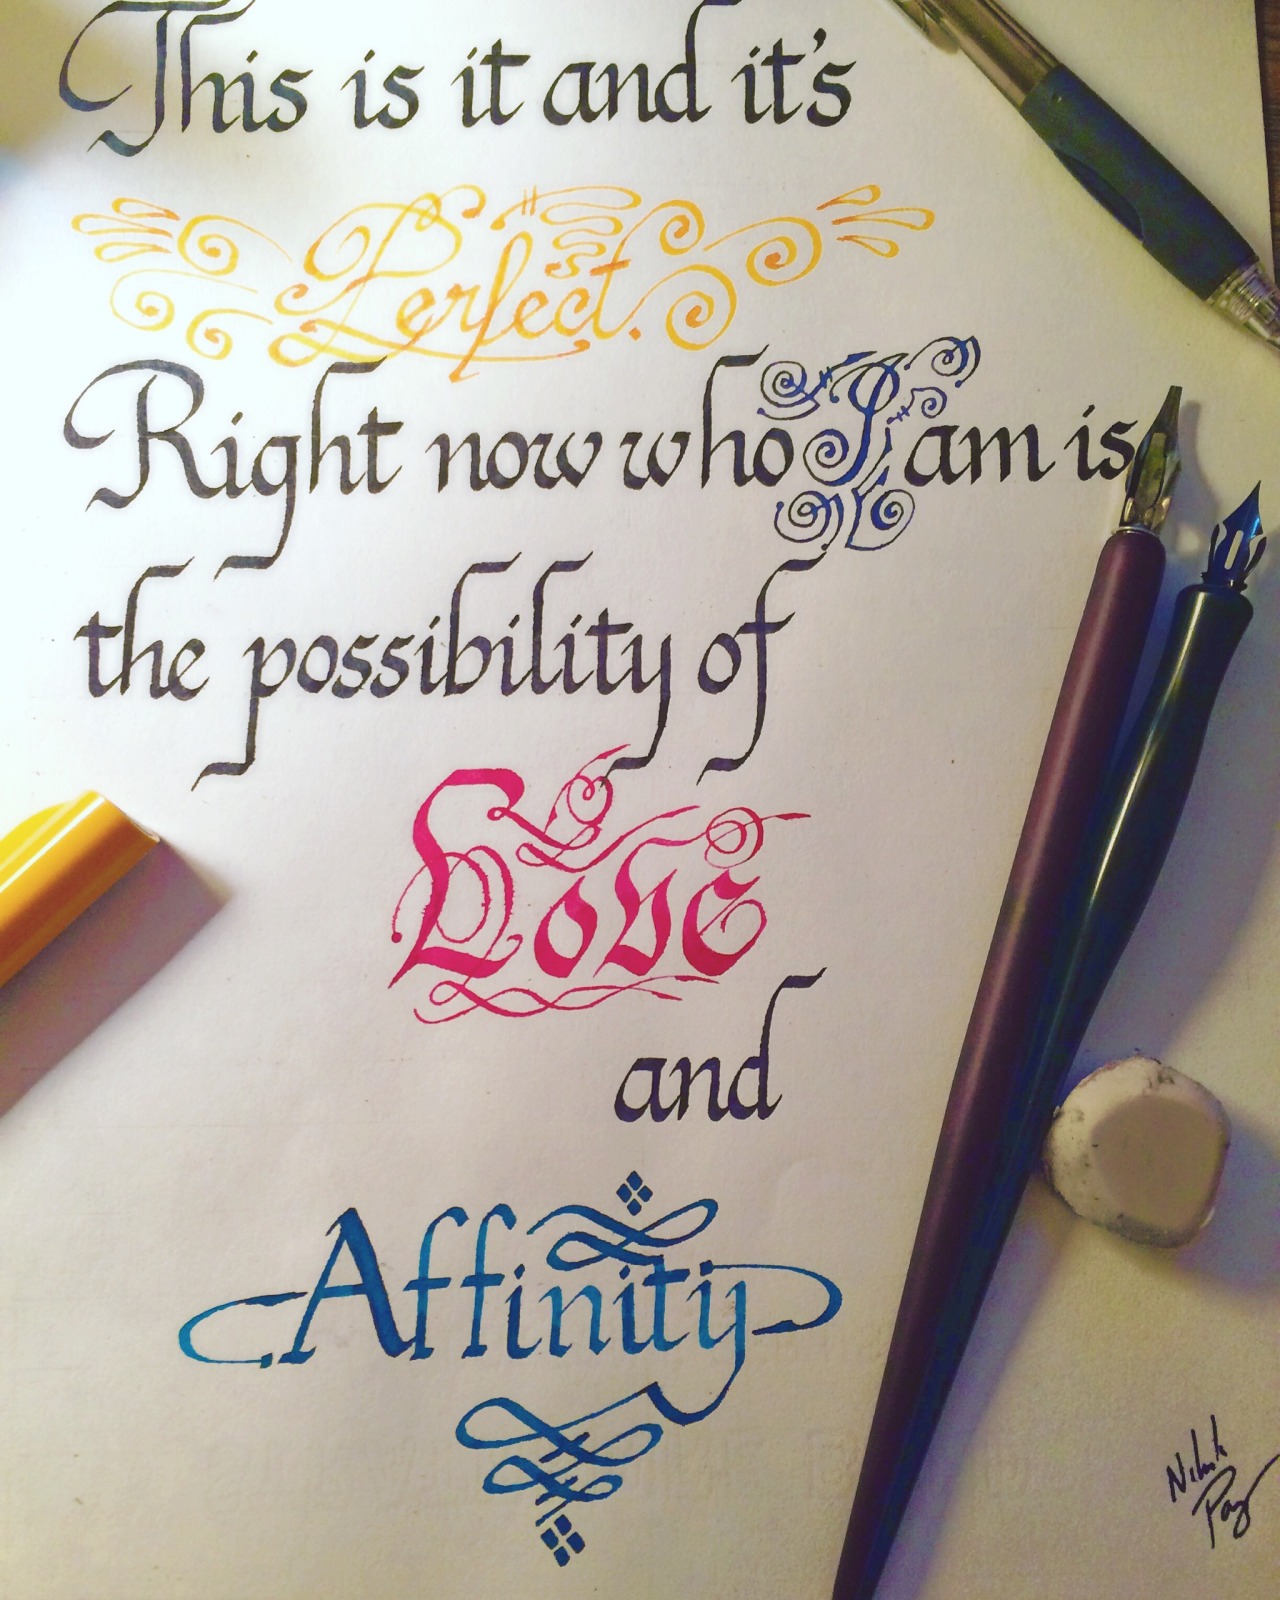 This is it and it's
Perfect.
Right now who I am is
the possibility of
Love
and
Affinity